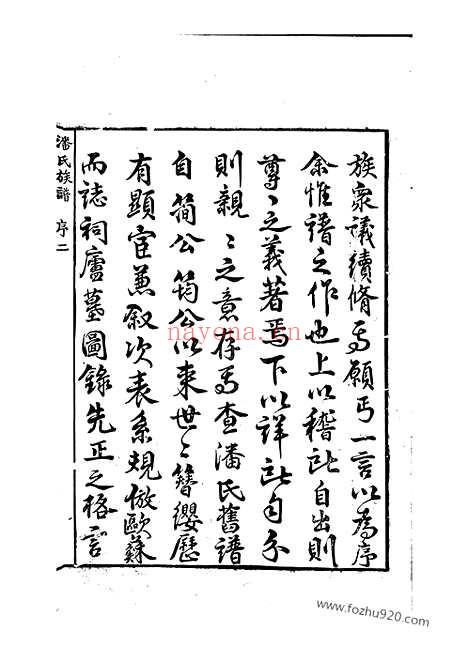 族衆議續脩焉願丐一言以為序
余惟譜之作也上以稽所自出則
尊〻之義著焉下以詳所自分
則親〻之意存焉查潘氏舊譜
自簡公筠公以來世〻簪纓歷
有顯宦兼叙次表系規倣歐蘇
而誌祠廬墓圖錄先正之格言
潘氏族譜 序二
nayona.cn
www.fozhu920.com